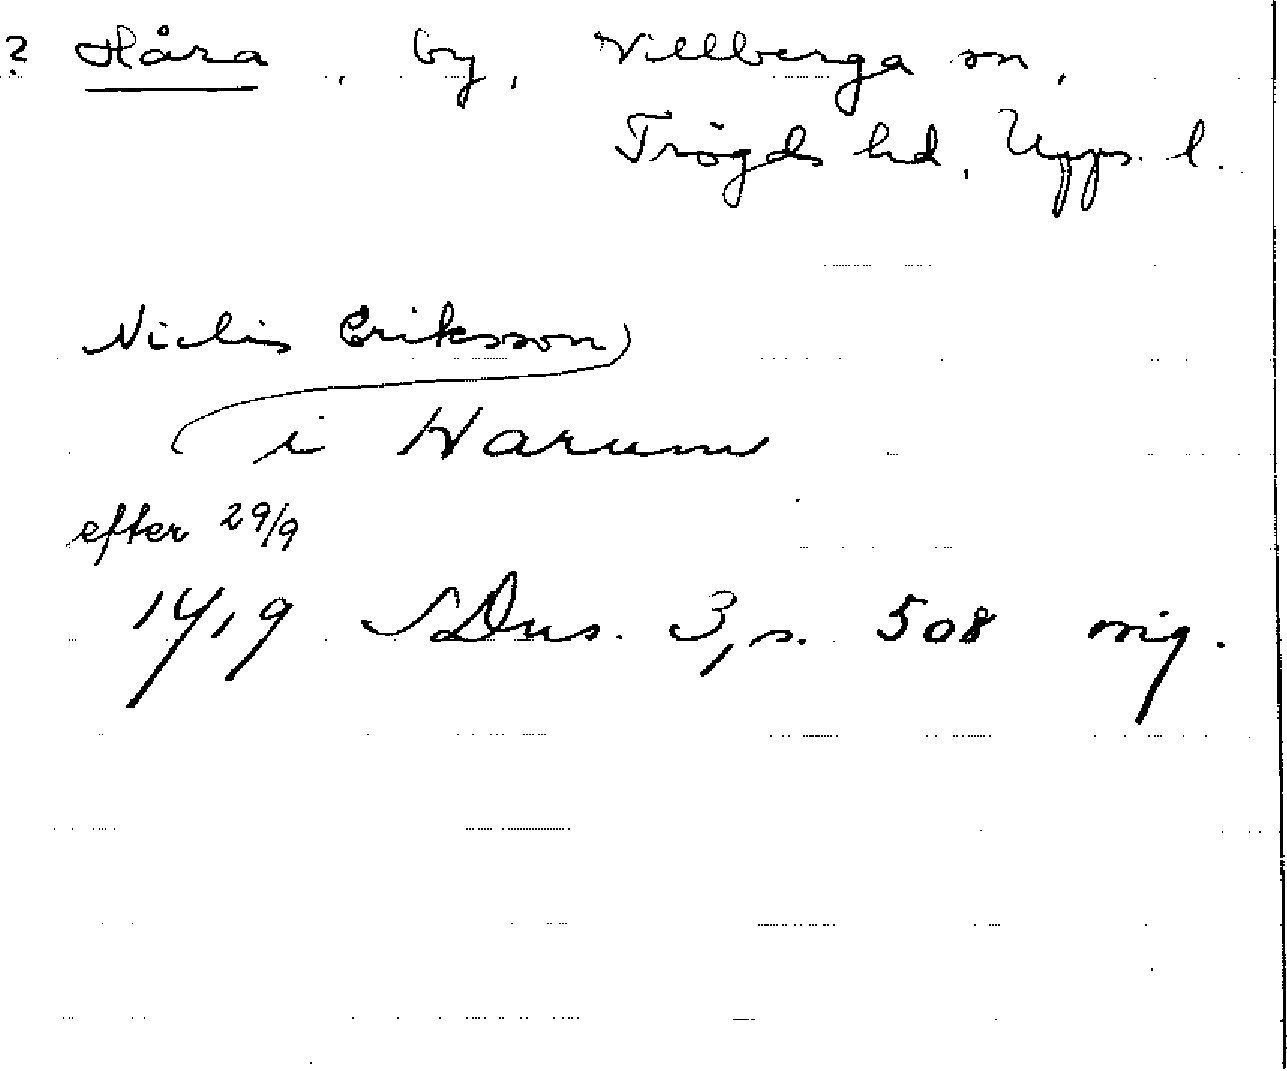 ? Håra, by, Villberga sn,
Trögds hd, Upps. l.
Niclis Eriksson
i Harum
efter 29/9
1419 SDns. 3, s. 508 orig.